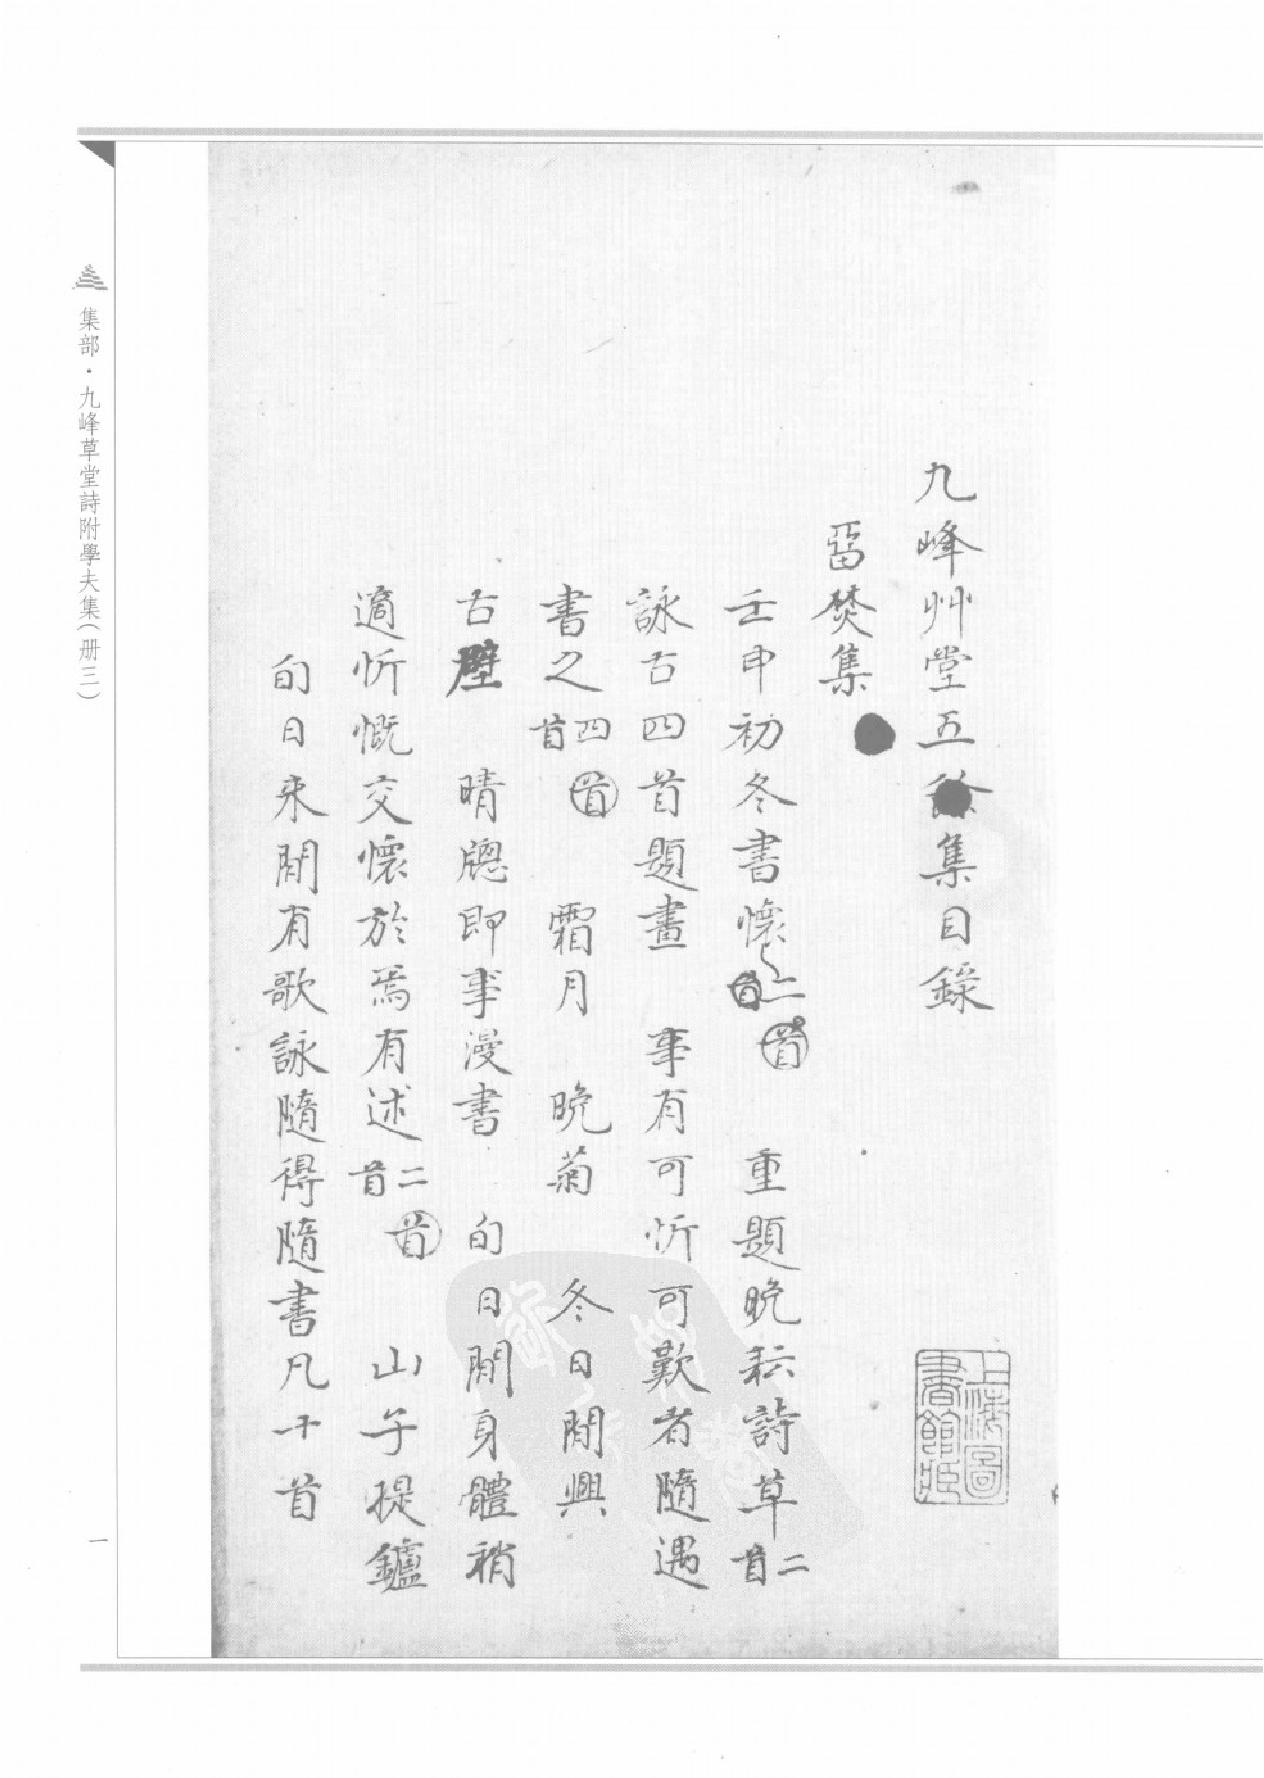 九峰艸堂五集目錄
畱焚集
壬申初冬書懷二首 首 重題晚耘詩草二首
詠古四首題畫 事有可忻可歎者隨遇
書之四首 首 霜月 晚菊 冬日閒興
古壁 晴牕即事漫書 旬日閒身體稍
適忻慨交懷於焉有述二首 首 山字提鑪
旬日來閒有歌詠隨得隨書凡十首
上海圖書館藏
集部·九峰草堂詩附學夫集(册三)
一